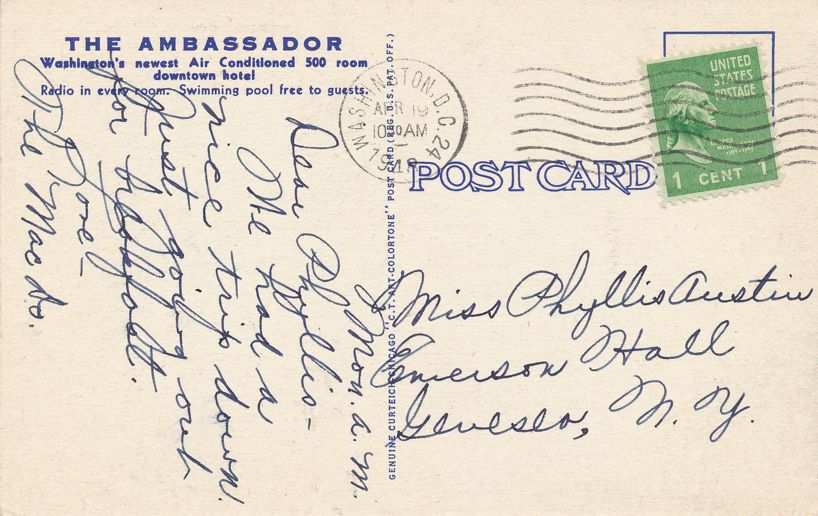 THE AMBASSADOR
Washington's newest Air Conditioned 500 room
downtown hotel
Radio in every room. Swimming pool free to guests.
Mon. a. m.
Dear Phyllis –
We had a
nice trip down.
Just going out
for breakfast.
Love –
The Mac Ds.
GENUINE CURTEICH-CHICAGO "C.T. ART-COLORTONE" POST CARD (REG. U.S. PAT. OFF.)
WASHINGTON, D.C. 24
APR 19
10 30 AM
1948
POST CARD
UNITED
STATES
POSTAGE
GEORGE
WASHINGTON
1789-1797
1 CENT 1
Miss Phyllis Austin
Emerson Hall
Geneseo, N. Y.